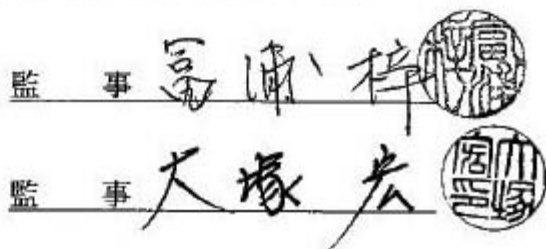 監事 冨浦梓
監事 大塚宏